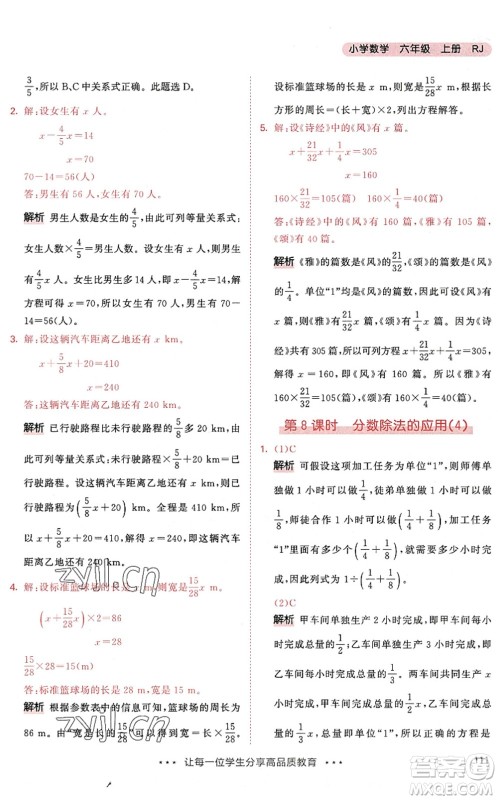 小学数学 六年级 上册 RJ
3/5,所以 B、C 中关系式正确。此题选 D。
2. 解:设女生有 x 人。
x-4/5x=14
x=70
70-14=56(人)
答:男生有 56 人,女生有 70 人。
解析 男生人数是女生的4/5,由此可列等量关系式:
女生人数×4/5=男生人数,男生有4/5x 人。根据女
生人数比男生人数多 14 人,即可列方程 x-4/5x=14,解
方程可得 x=70,所以女生有 70 人,男生有
70-14=56(人)。
3. 解:设这辆汽车距离乙地还有 x km。
x+5/8x+20=410
x=240
答:这辆汽车距离乙地还有 240 km。
解析 已行驶路程比未行驶路程的5/8还多
20 km,设未行驶路程为 x km,则已行驶路程
为(5/8x+20)km。全程是 410 km,即可列方程
x+5/8x+20=410,解得 x=240,即这辆汽车
距离乙地还有 240 km。
4. 解:设标准篮球场的长是 x m,则宽是15/28x m。
(x+15/28x)×2=86
x=28
15/28×28=15(m)
答:标准篮球场的长是 28 m,宽是 15 m。
解析 根据参数表中的信息可知,篮球场的周长为
86 m,宽是长的15/28,即等量关系式为长×15/28=宽,
设标准篮球场的长是 x m,则宽是15/28x m,根据长
方形的周长=(长+宽)×2,即可列方程。
5. 解:设《诗经》中的《风》有 x 篇。
x+21/32x+1/4x=305
x=160
160×21/32=105(篇) 160×1/4=40(篇)
答:《诗经》中《风》有 160 篇,《雅》有 105 篇,
《颂》有 40 篇。
解析 《雅》的篇数是《风》的21/32,《颂》的篇数是《风》
的1/4。单位“1”均是《风》的篇数,因此可设《风》有 x
篇,则《雅》有21/32x 篇,《颂》有1/4x 篇。根据《诗经》
共有 305 篇,所以可列方程 x+21/32x+1/4x=305,解得
x=160,所以《风》有 160 篇,《雅》有 105 篇,《颂》
有 40 篇。
第 8 课时 分数除法的应用(4)
1. (1)C
解析 可假设这项加工任务为单位“1”,则师傅单
独做 1 小时可以做1/4,徒弟单独做 1 小时可以做
1/8,师徒合作 1 小时可以做(1/4+1/8),加工任务
“1”里面有几个(1/4+1/8),就需要几小时可以完
成,因此列式为 1÷(1/4+1/8)。
(2)C
解析 甲车间单独生产 2 小时完成,即甲车间每小
时完成总量的1/2;乙车间单独生产 3 小时完成,即
乙车间每小时完成总量的1/3,所以两车间合作每小
时完成总量的(1/2+1/3),所以正确的方程是
让每一位学生分享高品质教育
111
zyjl.cn
zyjl.cn